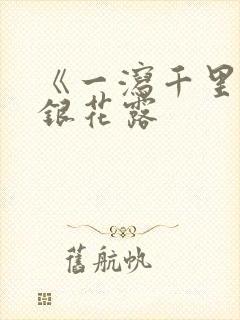 《一瀉千里
銀花露
舊航帆